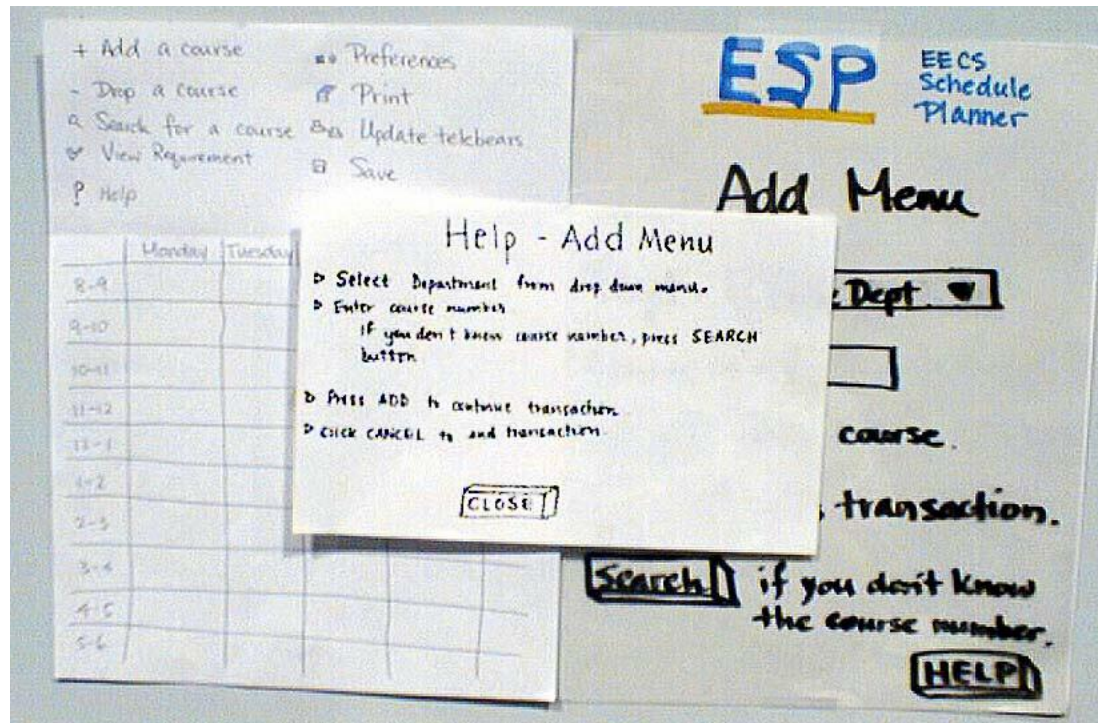 + Add a course
- Drop a course
Search for a course
View Requirement
? Help
Preferences
Print
Update telebears
Save
Monday Tuesday
8-9
9-10
10-11
11-12
12-1
1-2
2-3
3-4
4-5
5-6
Help - Add Menu
Select Department from drop down menu.
Enter course number
If you don't know course number, press SEARCH
button
Press ADD to continue transaction.
Click CANCEL to end transaction.
CLOSE
ESP
EECS
Schedule
Planner
Add Menu
Dept.
course.
transaction.
Search if you don't know
the course number.
HELP